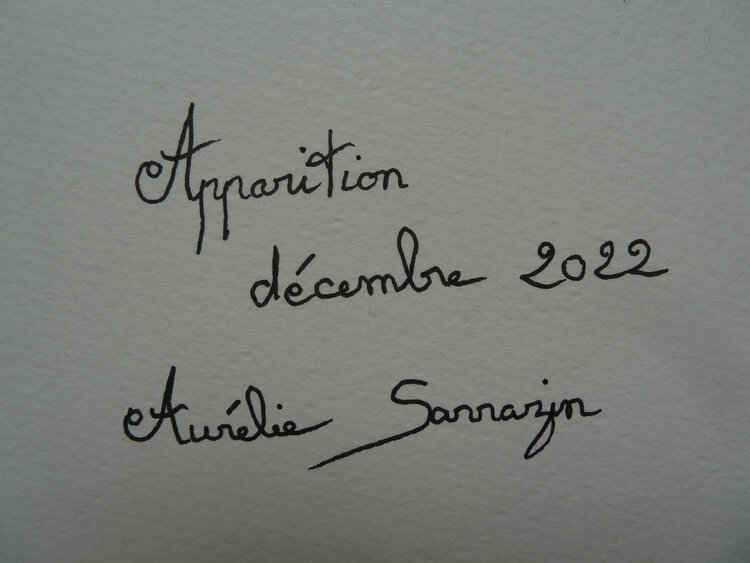 Apparition
décembre 2022
Aurélie Sarrazin